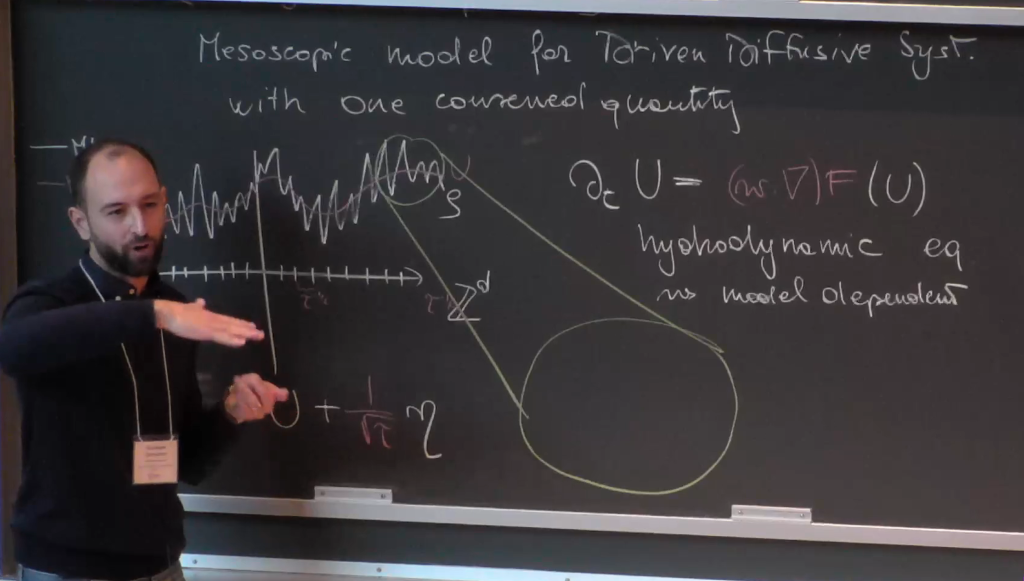 Mesoscopic model for Driven Diffusive Syst.
with one conserved quantity
ρ
ℤ^d
U + 1/√τ η
∂_τ U = (w·∇)F(U)
hydrodynamic eq
model dependent